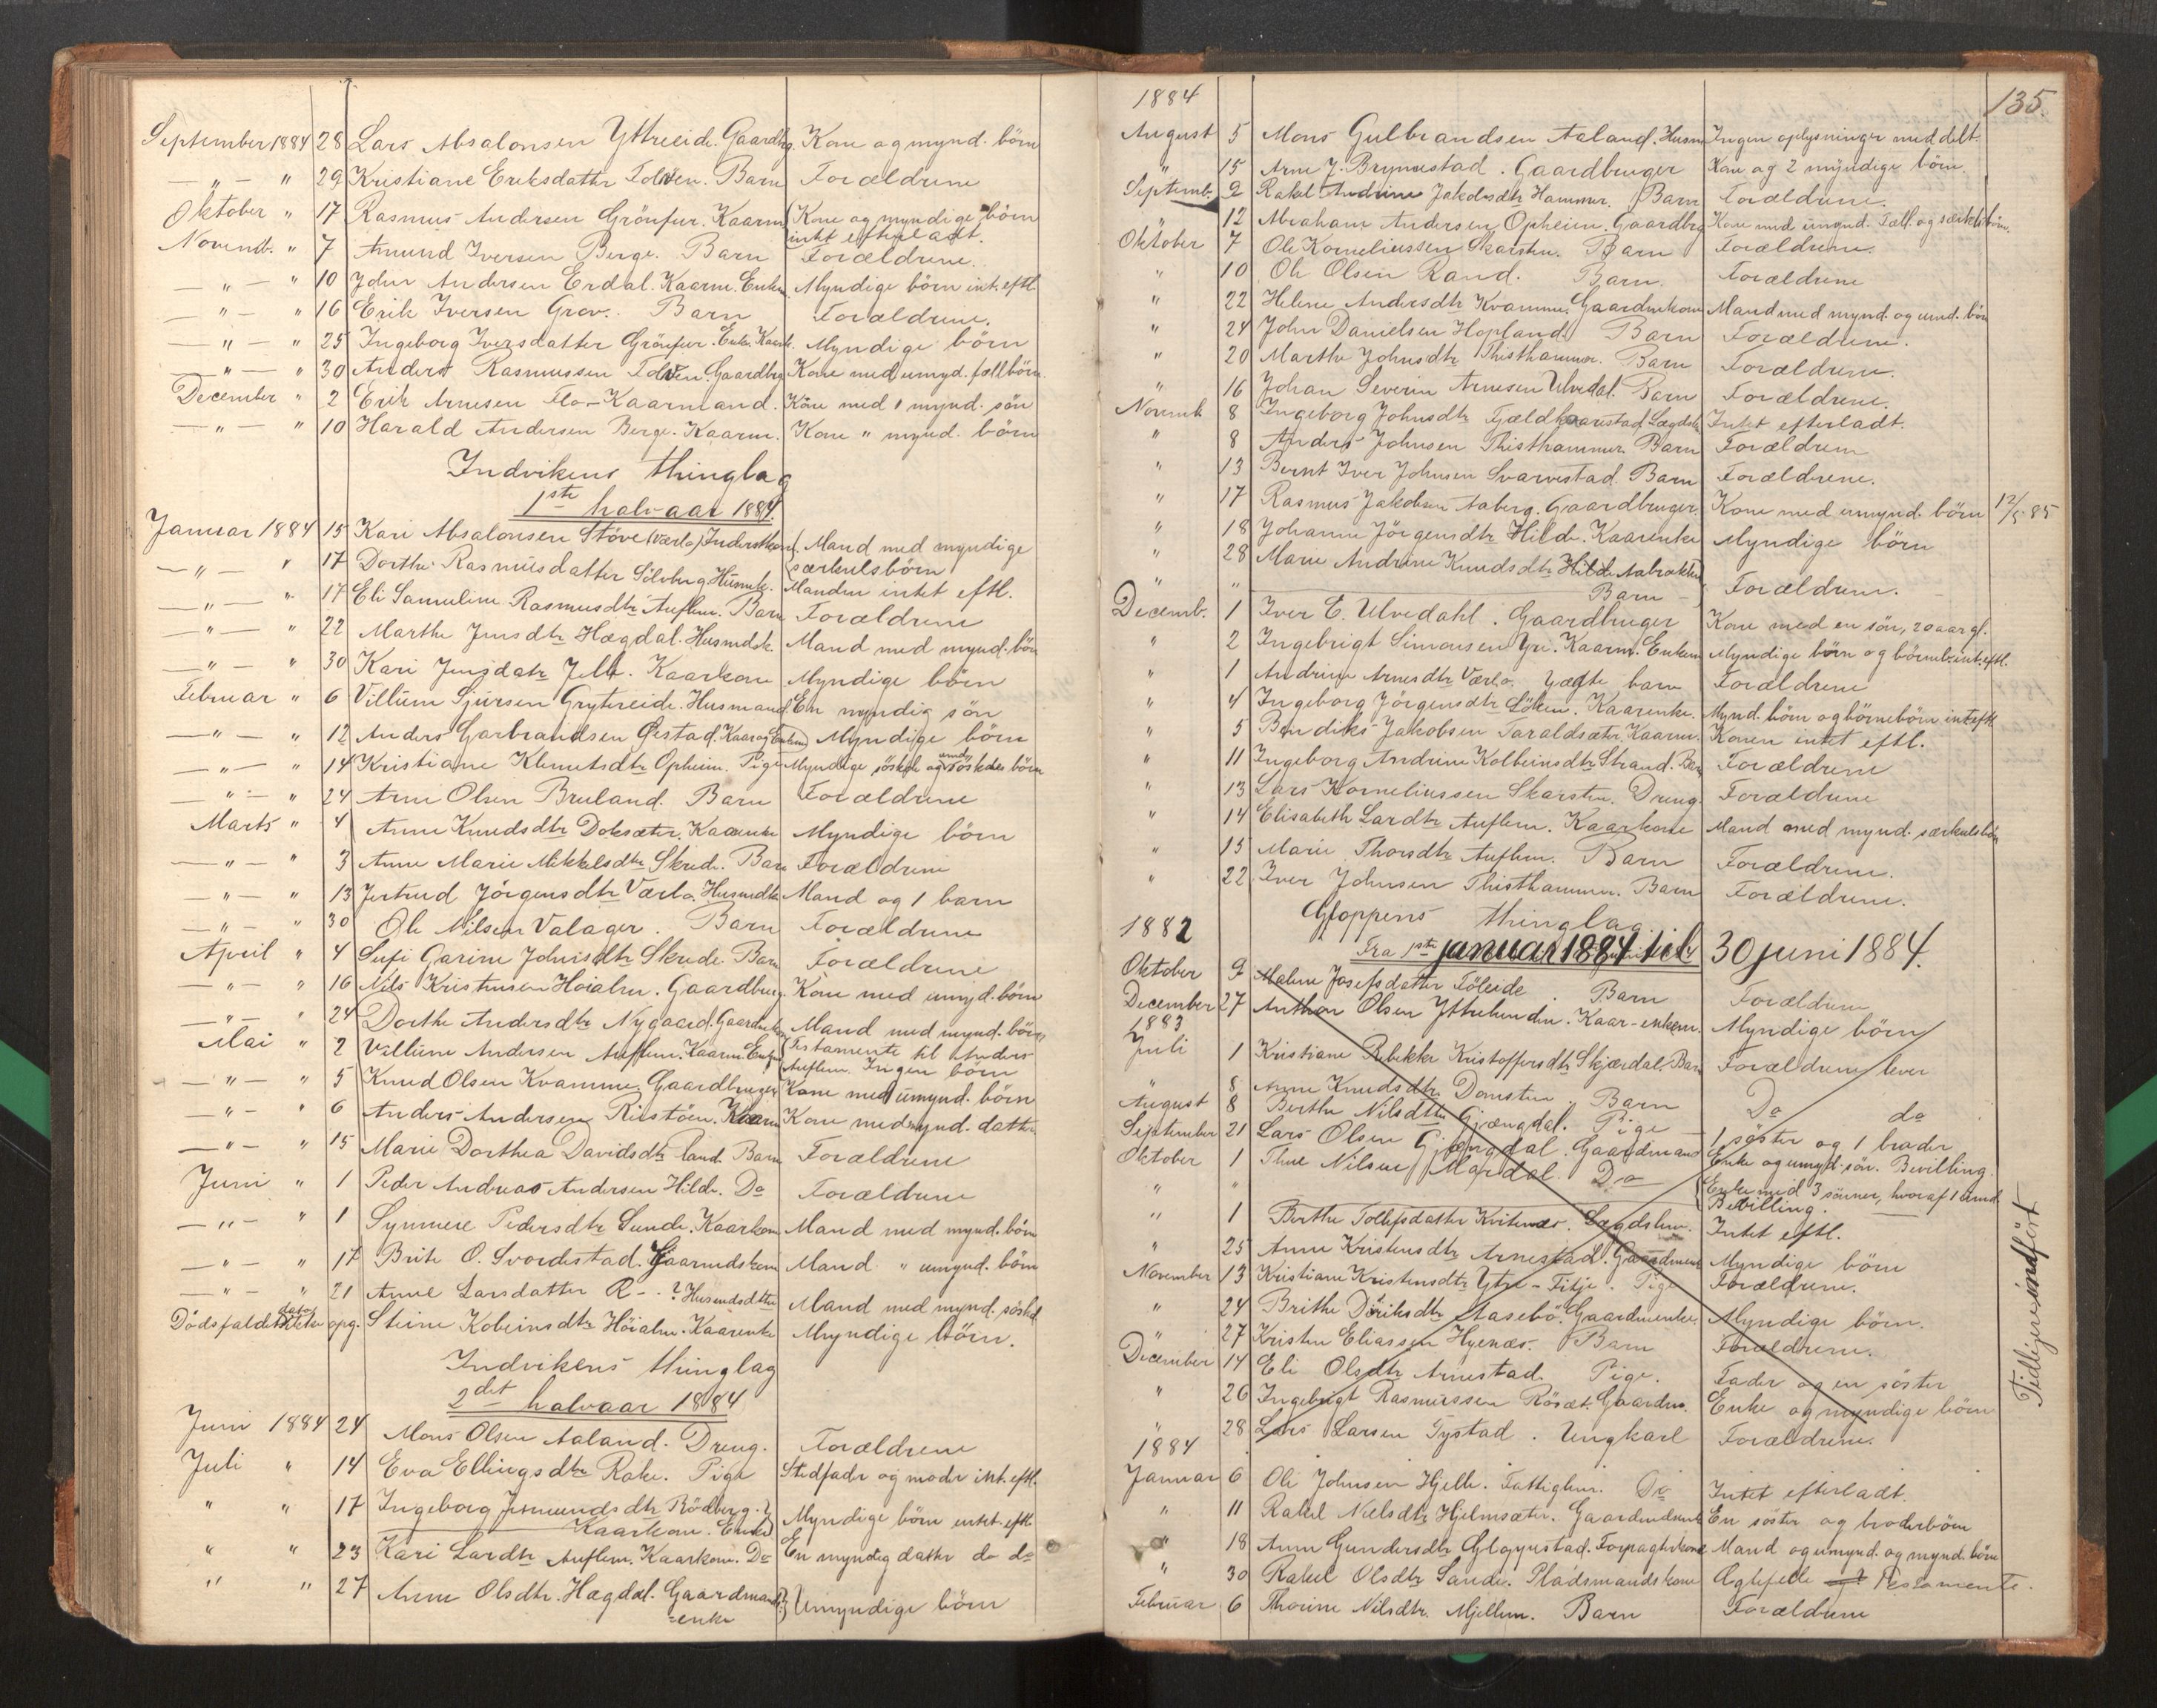 September 1884 28 Lars Absalonsen Yttreeide. Gaardbrg. Kone og mynd. börn
— " — " 29 Kristiane Eriksdatter Tolven. Barn Forældrene
Oktober " 17 Rasmus Andersen Grönfur. Kaarm. Kone og myndige börn
intet efterladt.
Novemb. " 7 Amund Iversen Berge. Barn Forældrene.
— " — " 10 John Andersen Erdal. Kaarm. Enkem. Myndige börn int. eftl.
— " — " 16 Erik Iversen Grov. Barn Forældrene.
— " — " 25 Ingeborg Iversdatter Grönfur. Enke. Kaark. Myndige börn
— " — " 30 Anders Rasmussen Tolven. Gaardbrg. Kone med umynd. fællbörn.
December " 2 Erik Arnesen Flo — Kaarmand. Kone med 1 mynd. sön
— " — " 10 Harald Andersen Berge. Kaarm. Kone " mynd. börn
Indvikens thinglag
1ste halvaar 1884.
Januar 1884 15 Kari Absalonsen Störe (Værlo) Mand med myndige
særkulsbörn
— " — " 17 Dorthe Rasmusdatter Sölvberg. Husmk. Manden intet eftl.
— " — " 17 Eli Samuline Rasmusdtr Auflem. Barn Forældrene
— " — " 22 Marthe Jensdtr Hægdal. Husmdsk. Mand med mynd. börn
— " — " 30 Kari Jensdatr. Kaarkone Myndige börn
Februar " 6 Villum Sjursen Grytereide. Husmand En myndig sön
— " — " 12 Anders Garbrandsen Örstad. Kaar og Enkem. Myndige börn
— " — " 14 Kristiane Klemetsdtr Opheim. Pige Myndige söskde og umd. söskdes börn
— " — " 24 Arne Olsen Bruland. Barn Forældrene
Marts " 4 Anne Knudsdtr Doksæter. Kaarenke Myndige börn
— " — " 3 Anne Marie Mikkelsdtr Skrede. Barn Forældrene
— " — " 13 Jertrud Jörgensdtr Værlo. Husmdk. Mand og 1 barn
— " — " 30 Ole Nilsen Valager. Barn Forældrene
April " 4 Sufi Garine Johnsdtr Skrede. Barn Forældrene
— " — " 16 Nils Kristensen Höialm. Gaardbrug. Kone med umynd. börn
— " — " 24 Dorthe Andersdtr Nygaard. Gaardmkone Mand med mynd. börn
Mai " 2 Villum Andersen Auflem. Kaarm. Enkem. Testamente til Anders
Auflem. Ingen börn
— " — " 5 Knud Olsen Kvamme. Gaardbruger Kone med umynd. börn
— " — " 6 Anders Andersen Ristöen. Kaarm Kone med mynd. datter
— " — " 15 Marie Dorthea Davidsdtr land. Barn Forældrene
Juni " 1 Peder Andreas Andersen Hilde. Do Forældrene
— " — " 1 Synneve Pedersdtr Sunde. Kaarkone Mand med mynd. börn
— " — " 17 Brite O. Svordestad. Gaarmdskone Mand " umynd. börn
— " — " 21 Anne Larsdatter R- - ? Husmdsdtter Mand med mynd. söskd.
Dödsfaldets dato ikke opg. Steine Kobeinsdtr Höialm. Kaarenke Myndige börn.
Indvikens thinglag
2det halvaar 1884
Juni 1884 24 Mons Olsen Aaland. Dreng. Forældrene
Juli " 14 Eva Ellingsdtr Rake. Pige Stedfader og moder int. eftl.
" " 17 Ingeborg Jermundsdtr Rödberg. ? Myndige börn intet eftl.
Kaarkone. Enke
" " 23 Kari Larsdtr Auflem. Kaarkone. Do En myndig datter do do
" " 27 Anne Olsdtr. Hægdal. Gaardmands Umyndige börn
=enke
135.
1884
August 5 Mons Gulbrandsen Aaland. Husm Ingen oplysninger meddelt.
" 15 Arne J. Brynestad. Gaardbruger Kone og 2 myndige börn.
Septemb. 2 Rakel Andrine Jakobsdtr Hammer. Barn Forældrene.
" 12 Abraham Andersen Opheim. Gaardbrg Kone med umynd. fæll. og særkulsbörn.
Oktober 7 Ole Korneliussen Skarsten. Barn Forældrene.
" 10 Ole Olsen Rand. Barn. Forældrene
" 22 Helene Andersdtr Kvamme. Gaardmkone Mand med mynd. og umd. börn
" 24 John Danielsen Hopland. Barn Forældrene.
" 20 Marthe Johnsdtr Thisthammer. Barn Forældrene.
" 16 Johan Severin Arnesen Ulvedal. Barn Forældrene.
Novemb. 8 Ingeborg Johnsdtr Fjældkaarstad. Lægdsl. Intet efterladt.
" 8 Anders Johnsen Thisthammer. Barn Forældrene
" 13 Bernt Iver Johnsen Svarvestad. Barn Forældrene.
" 17 Rasmus Jakobsen Aaberg. Gaardbruger. Kone med umynd. börn 12/5 85
" 18 Johanne Jörgensdtr Hilde. Kaarenke Myndige börn
" 28 Marie Andrine Knudsdtr Hilde Aabrækken
" " Barn — Forældrene.
Decemb. 1 Iver E. Ulvedahl. Gaardbruger Kone med en sön, 20 aar gl.
" 2 Ingebrigt Simonsen Yri. Kaarm. Enkem Myndige börn og börnebörn int. eftl.
" 1 Andrine Arnesdtr Værlo. Yægte barn Forældrene
" 4 Ingeborg Jörgensdtr Löken. Kaarenke. Mynd. börn og börnebörn int. eftl.
" 5 Bendiks Jakobsen Taraldsæter. Kaarm. Konen intet eftl.
" 11 Ingeborg Andrine Kolbeinsdtr Strand. Barn Forældrene
" 13 Lars Korneliussen Skarsten. Dreng. Forældrene
" 14 Elisabeth Larsdtr Auflem. Kaarkone Mand med mynd. særkulsbörn
" 15 Marie Thorsdtr Auflem. Barn Forældrene.
" 22 Iver Johnsen Thisthammer. Barn Forældrene.
Gloppens thinglag.
1882
Fra 1ste januar 1884 til 30 juni 1884.
Oktober 9 Malene Josefsdatter Föleide. Barn Forældrene
December 27 Anthon Olsen Yttrehenden. Kaar-enkem. Myndige börn
1883
Juli 1 Kristiane Rebekke Kristoffersdtr Skjærdal. Barn Forældrene lever
" 8 Anne Knudsdtr Domsten. Barn Do do
August 8 Berthe Nilsdtr Gjængdal. Pige 1 söster og 1 broder
September 21 Lars Olsen Gjængdal. Gaardmand Enke og umyd. sön. Bevilling.
Oktober 1 Thue Nilsen Mardal. Do Enke med 3 sönner, hvoraf 1 umd.
" " Bevilling.
" 1 Berthe Tollefsdatter Kvitenes. Lægdslem. Intet eftl.
" 25 Anne Kristensdtr Arnestad. Gaardmenke Myndige börn
November 13 Kristiane Kristensdtr Ytre-Fitje. Pige Forældrene.
" 24 Brithe Dïriksdtr Aasebö. Gaardmenke. Myndige börn.
" 27 Kristen Eliassen Hyenæs. Barn Forældrene.
December 14 Eli Olsdtr Arnestad. Pige. Fader og en söster
" 26 Ingebrigt Rasmussen Rösæt. Gaardm. Enke og myndige börn
" 28 Lars Larsen Tystad. Ungkarl Forældrene.
1884
Januar 6 Ole Johnsen Hjelle. Fattiglem. Do Intet efterladt.
" 11 Rakel Nielsdtr Hjelmsæter. Gaardmdsenke En söster og broderbörn
" 18 Anne Gundersdtr Gloppestad. Forpagterkone Mand og umynd. og mynd. börn
" 30 Rakel Olsdtr Sande. Pladsmandskone Ægtefelle Testamente.
Februar 6 Thorine Nilsdtr. Mjellem. Barn Forældrene
Tidligere indfört